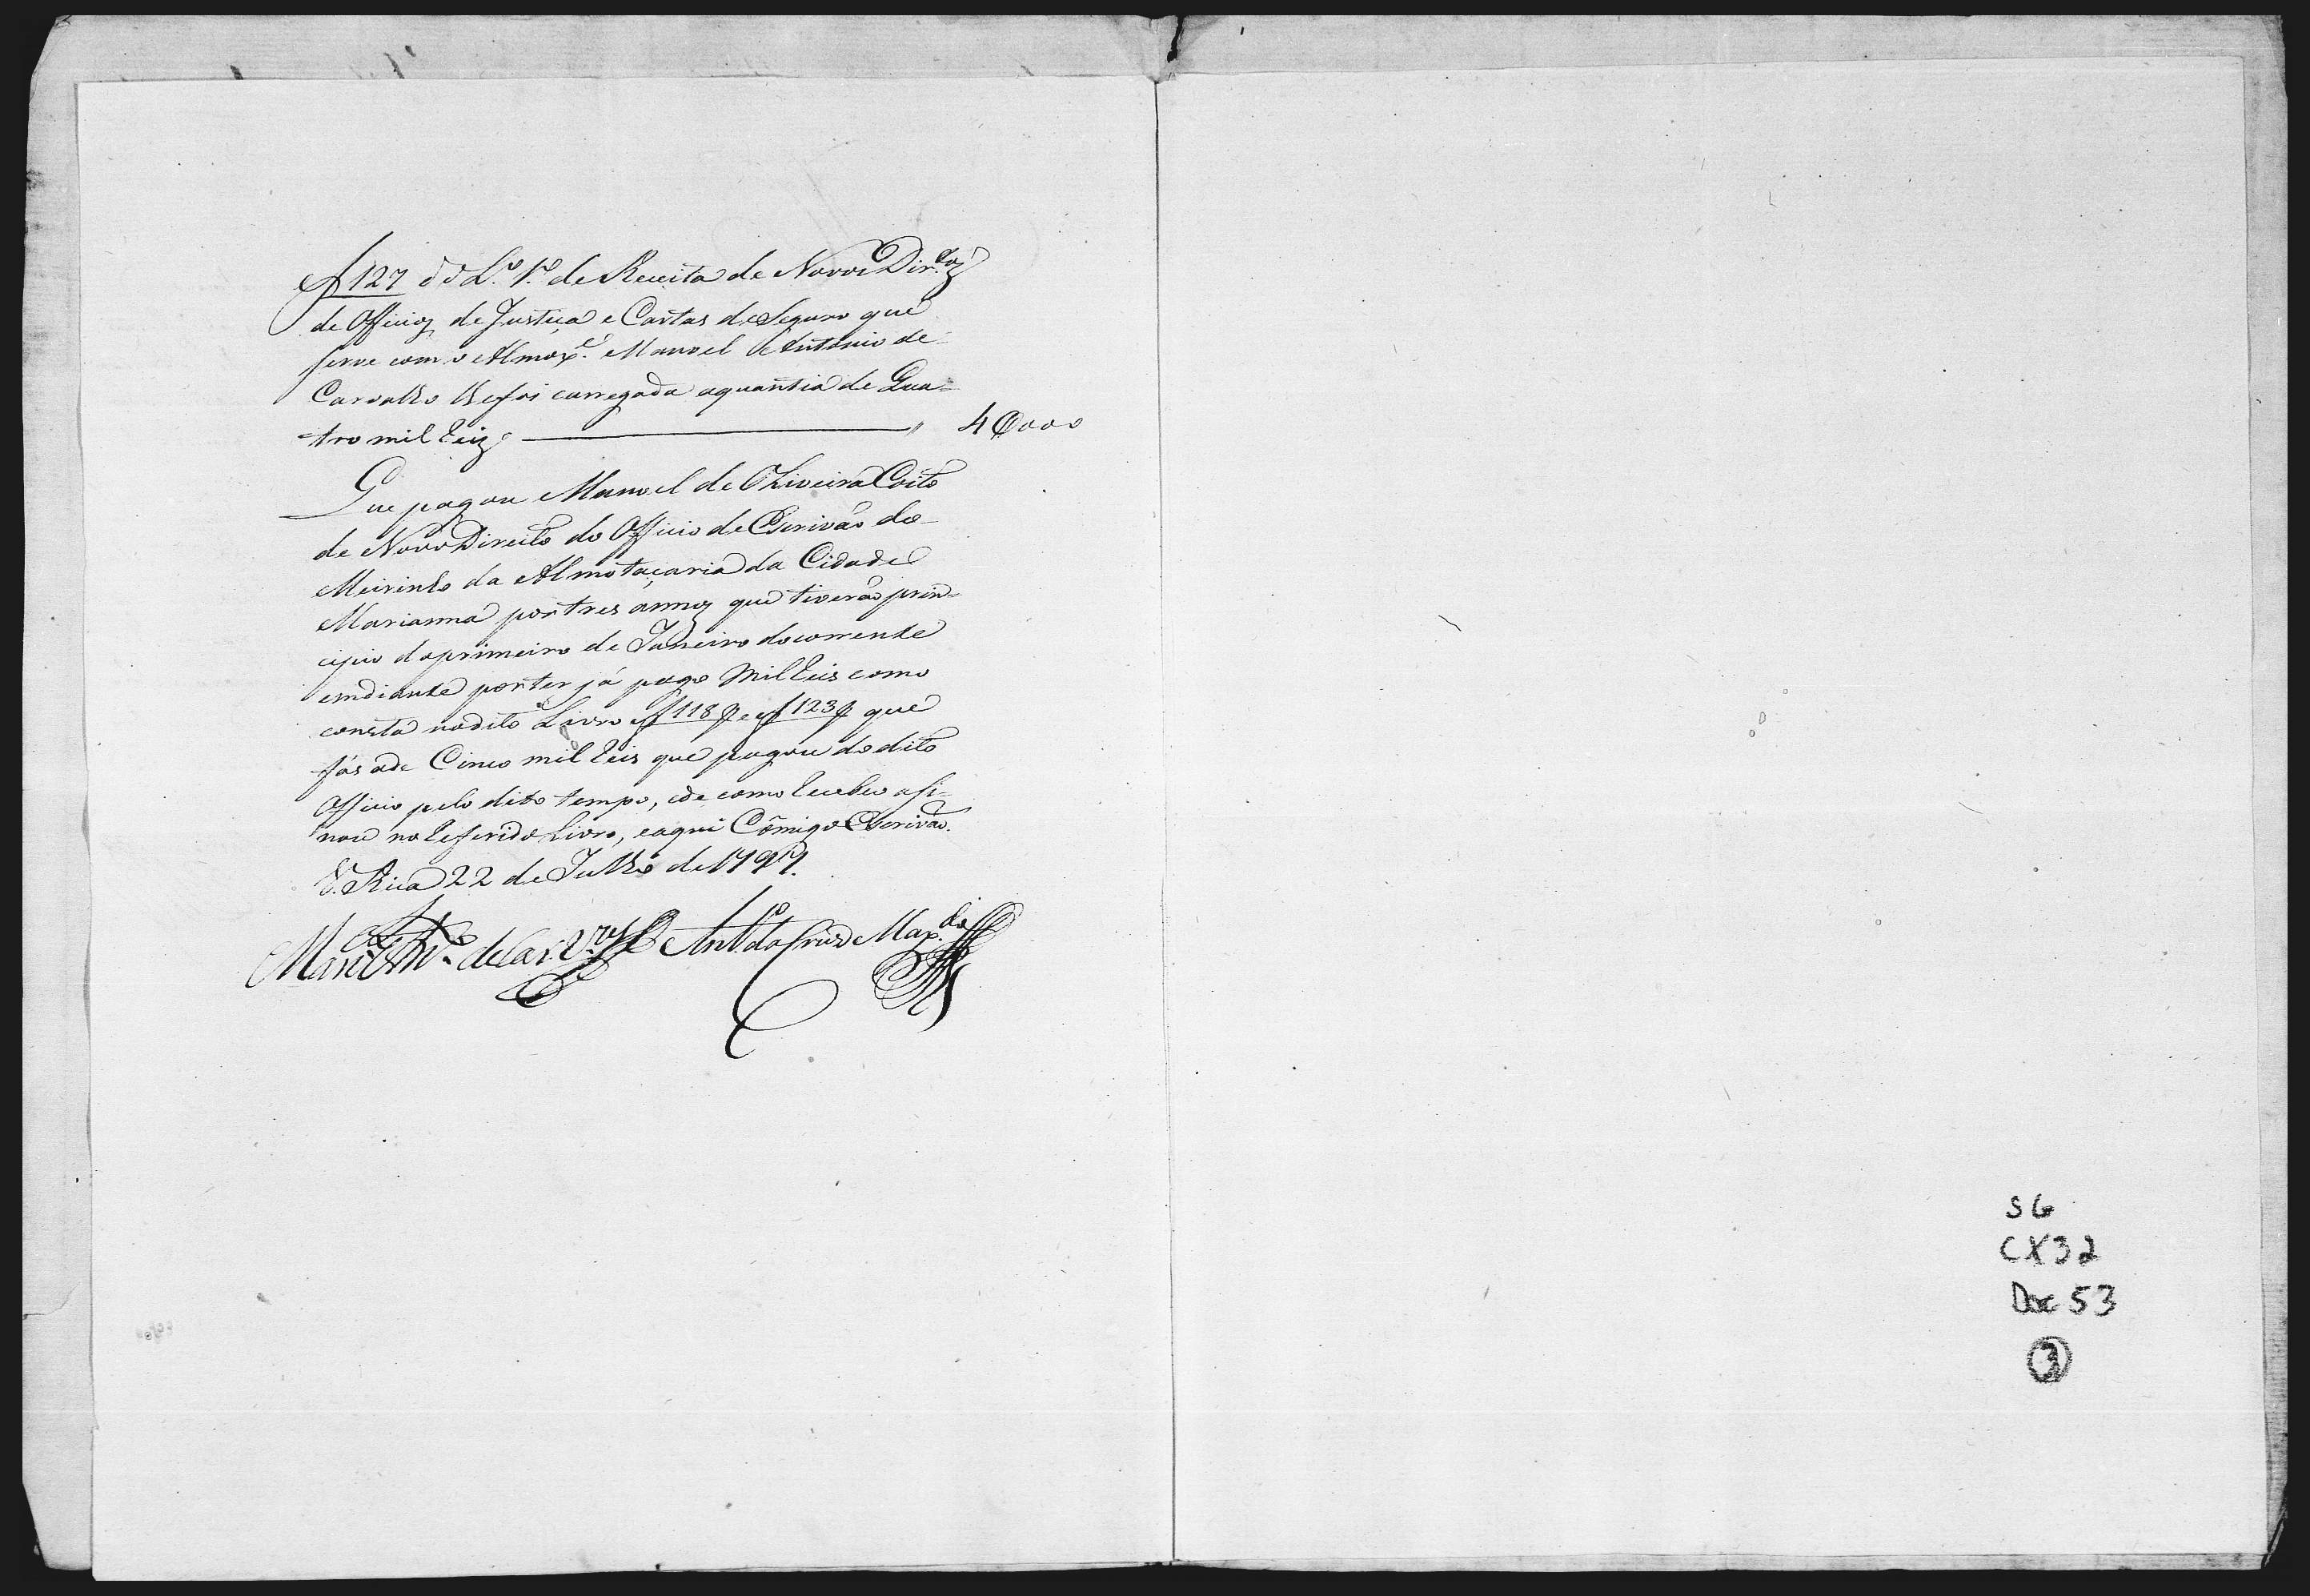 A f 127 do L.º 1.º de Receita de Novos Dir.tos
de Officios de Justiça e Cartas de Seguro que
serve com o Almox.e Manoel Antonio de
Carvalho lhe foi carregada aquantia de Qua=
tro mil reis ———— " 4$000
Que pagou Manoel de Oliveira Coito
de Novo Direito do Officio de Escrivão do
Meirinho da Almotaçaria da Cidade
Marianna por tres annos que tiverão prin=
cipio do primeiro de Janeiro do corrente
emdiante por ter já pago mil reis como
consta no dito Livro a f 118 e a f 123 que
fás ade Cinco mil reis que pagou do dito
Officio pelo dito tempo, ede como recebeo asi=
nou no referido Livro, eaqui Cõmigo Escrivão.
V.a Rica 22 de Julho de 1797.
Man.el Ant.o de Car.o Ant.o da Cruz Mach.do
SG
CX32
Doc 53
3